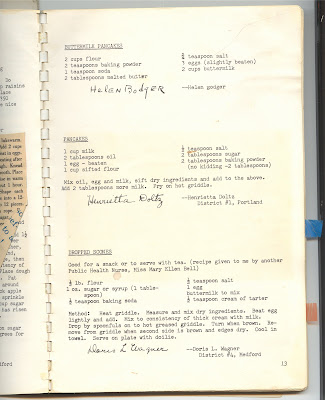 BUTTERMILK PANCAKES
2 cups flour
2 teaspoons baking powder
1 teaspoon soda
2 tablespoons malted butter
½ teaspoon salt
3 eggs (slightly beaten)
2 cups buttermilk
Helen Bodger
--Helen godger
PANCAKES
1 cup milk
2 tablespoons oil
1 egg - beaten
1 cup sifted flour
½ teaspoon salt
2 tablespoons sugar
2 tablespoons baking powder
(no kidding -2 tablespoons)
Mix oil, egg and milk, sift dry ingredients and add to the above.
Add 2 tablespoons more milk. Fry on hot griddle.
Henrietta Doltz
--Henrietta Doltz
District #1, Portland
DROPPED SCONES
Used for a snack or to serve with tea. (recipe given to me by another
Public Health Nurse, Miss Mary Ellen Bell)
½ lb. flour
1 oz. sugar or syrup (1 table-
spoon)
½ teaspoon baking soda
½ teaspoon salt
1 egg
buttermilk to mix
½ teaspoon cream of tarter
Method: Heat griddle. Measure and mix dry ingredients. Beat egg
lightly and add. Mix to consistency of thick cream with milk.
Drop by spoonfuls on to hot greased griddle. Turn when brown. Re-
move from griddle when second side is brown and edges dry. Cool in
towel. Serve on plate with doilie.
Doris L Wagner
--Doris L. Wagner
District #4, Medford
13